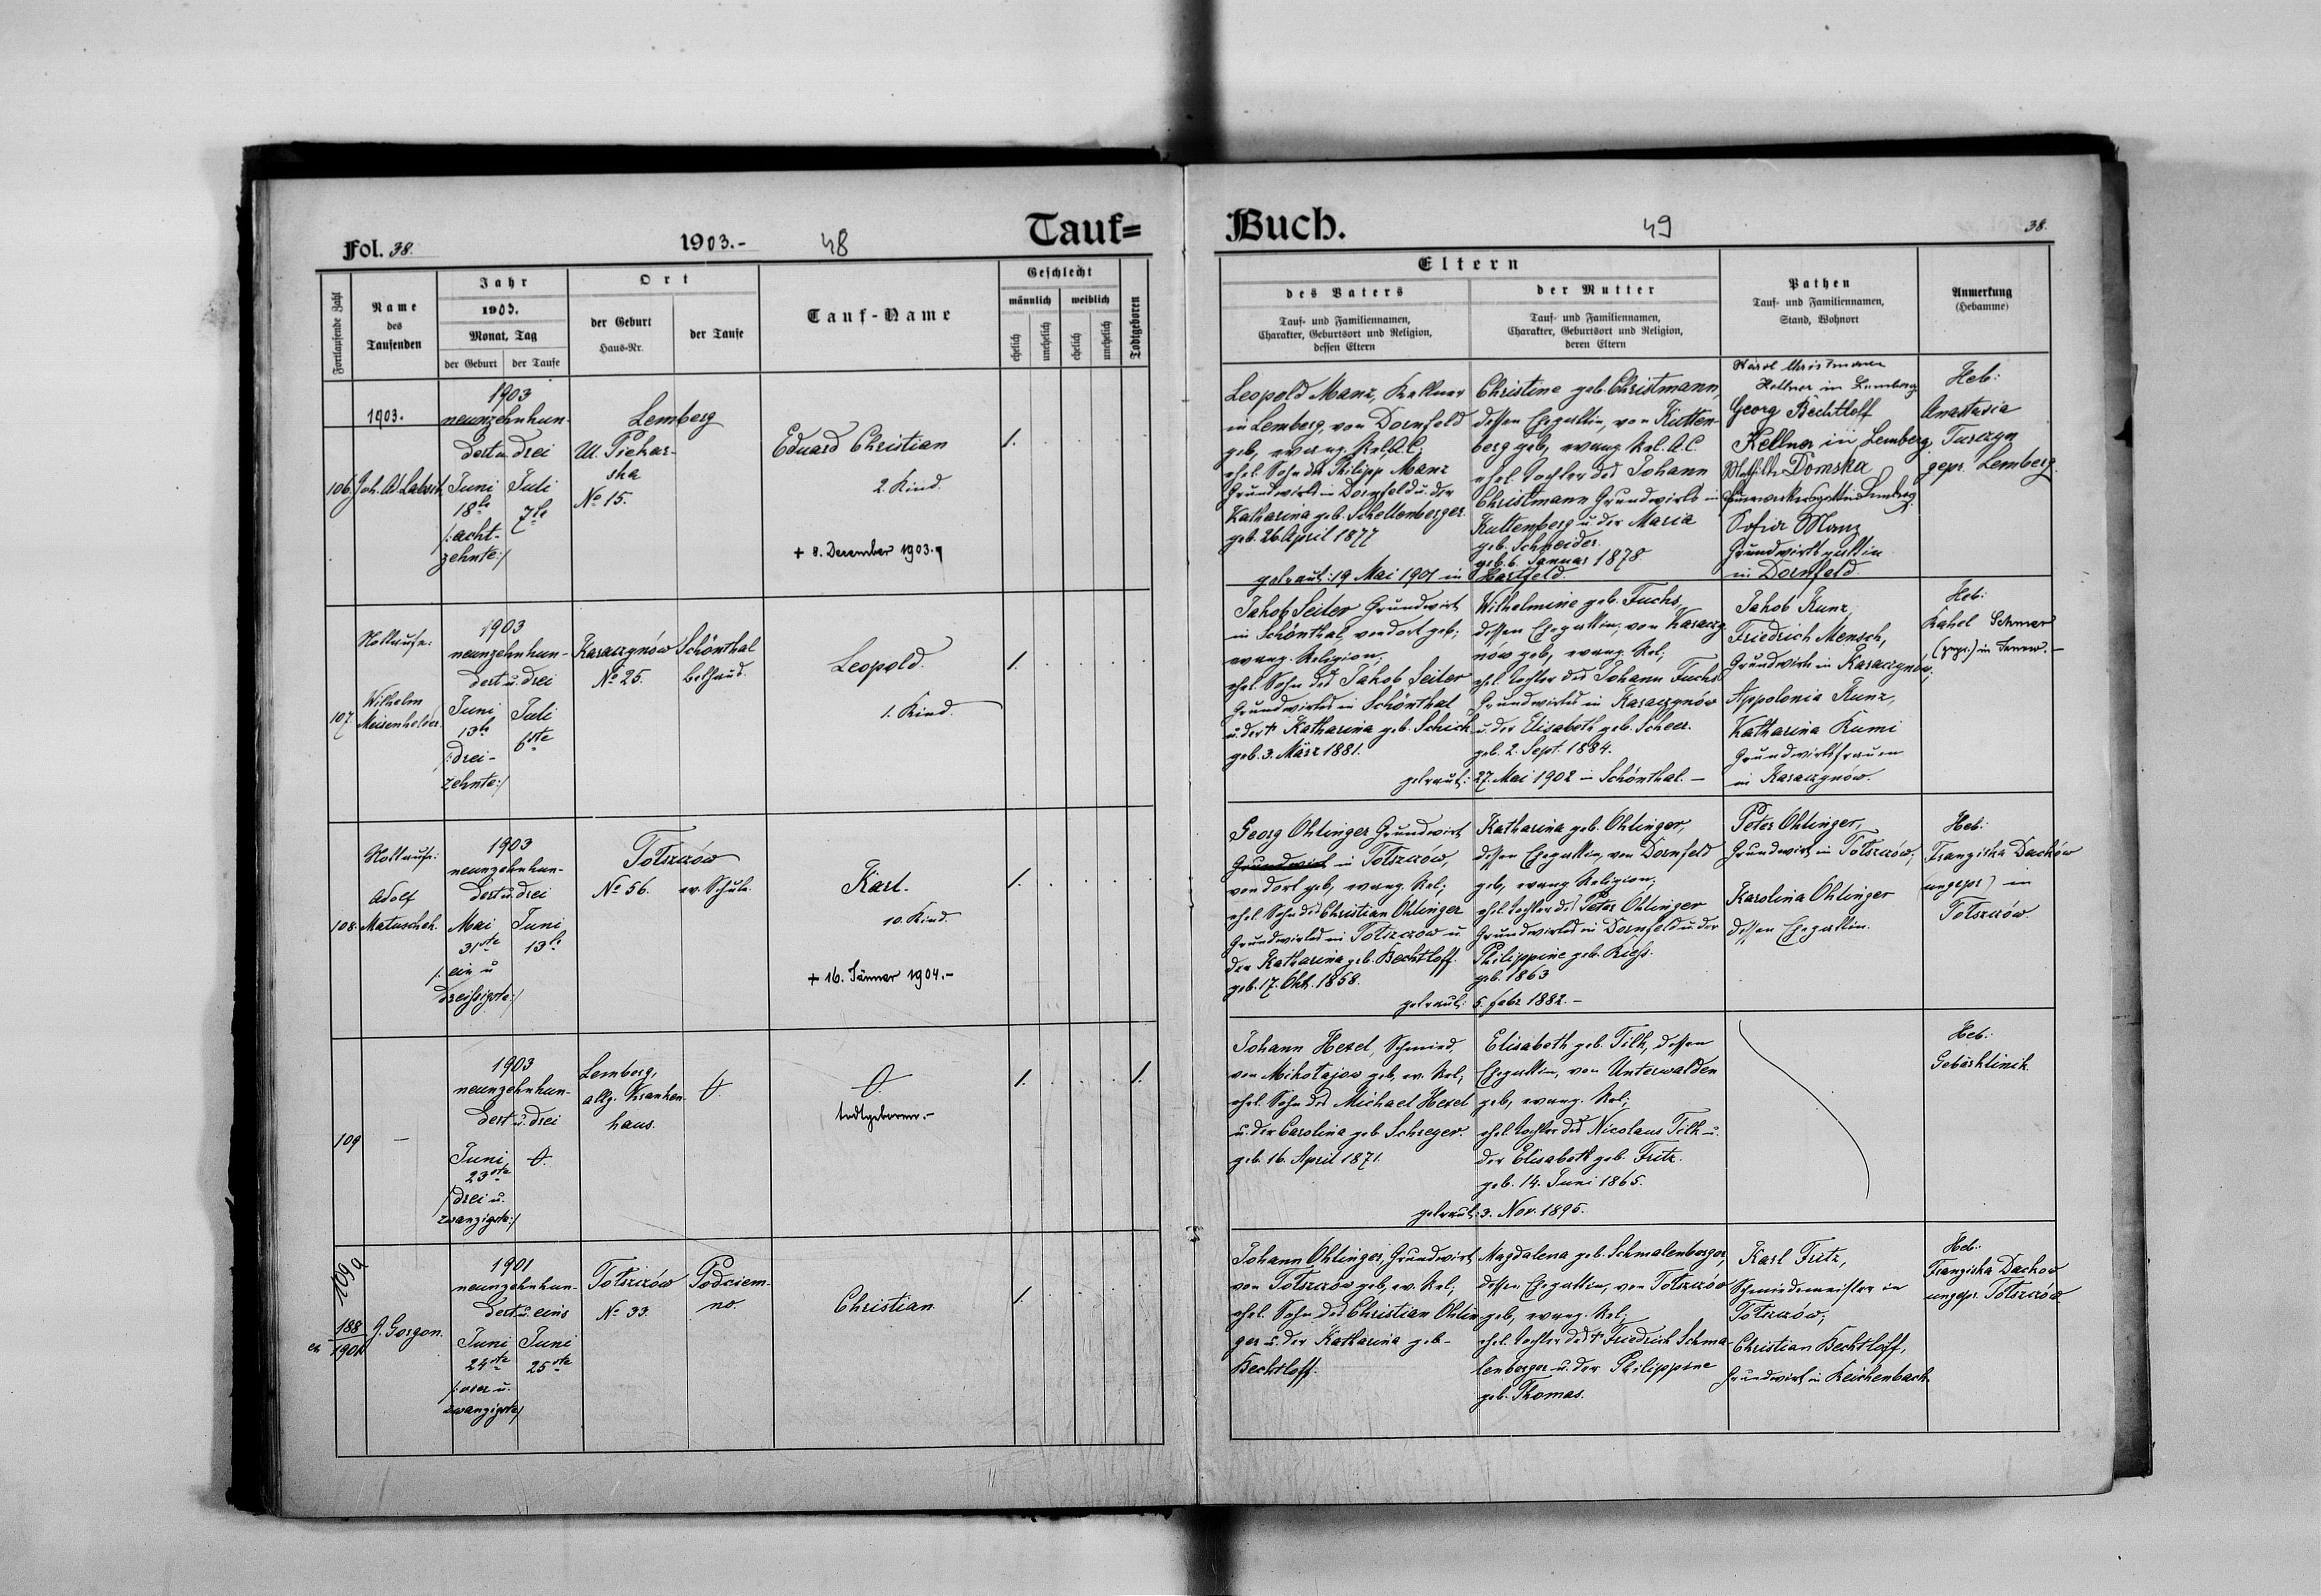 Fol. 38.
1903.-
48
Tauf=
Fortlaufende Zahl
Name
des
Taufenden
Jahr
1903.
Monat, Tag
der Geburt
der Taufe
Ort
der Geburt
Haus-Nr.
der Taufe
Tauf-Name
Geschlecht
männlich
weiblich
ehelich
unehelich
ehelich
unehelich
Todtgeboren
1903.
106.
Joh. Ad. Labsik
1903
neunzehnhun-
dert u. drei
Juni
18te
/:acht-
zehnte:/
Juli
7te
Lemberg
Ul. Piekar-
ska
No 15.
Eduard Christian
2. Kind.
+ 8. Dezember 1903.
1.
Nottaufe:
107.
Wilhelm
Meisenhelder.
1903
neunzehnhun-
dert u. drei
Juni
13te
/:drei-
zehnte:/
Juli
6ste
Karaczynów
No 25.
Schönthal
Bethaus.
Leopold.
1. Kind.
1.
Nottaufe:
108.
Adolf
Matuschek.
1903
neunzehnhun-
dert u. drei
Mai
31ste
/: ein u
dreissigste:/
Juni
13te
Tołszczów
No 56.
ev. Schule.
Karl.
10. Kind.
+ 16. Jänner 1904.-
1.
109
–
1903
neunzehnhun-
dert u. drei
Juni
23ste
/drei u.
zwanzigste:/
Lemberg,
allg. Kranken-
haus.
todtgeboren.-
1.
1.
109a
188
1901
J. Gorgon.
1901
neunzehnhun-
dert u. eins
Juni
24ste
/:vier u.
zwanzigste/
Juni
25ste
Tołszczów
No 33.
Podciem-
no.
Christian.
1.
Buch.
49
38.
Eltern
des Vaters
Tauf- und Familiennamen,
Charakter, Geburtsort und Religion,
dessen Eltern
der Mutter
Tauf- und Familiennamen,
Charakter, Geburtsort und Religion,
deren Eltern
Pathen
Tauf- und Familiennamen,
Stand, Wohnort
Anmerkung
(Hebamme)
Leopold Manz, Kellner
in Lemberg, von Dornfeld
geb, evang. Rel. A.C.
ehel. Sohn des Philipp Manz
Grundwirts in Dornfeld u. der
Katharina geb. Schellenberger.
geb. 26 April 1877
Christine geb. Christmann,
dessen Ehegattin, von Kutten-
berg geb, evang. Rel. A.C.
ehel. Tochter des Johann
Christmann Grundwirts in
Kuttenberg u. der Maria
geb. Schneider.
geb. 6. Januar 1878.
getraut: 19 Mai 1901 in Hartfeld.
Karol Christmann
Kellner in Lemberg
Georg Bechtloff
Kellner in Lemberg
Mathilde Domska
Sofia Manz
Grundwirtsgattin
in Dornfeld.
Heb:
Anastasia
Turczyn
gepr. Lemberg.
Jakob Seiler Grundwirt
in Schönthal, von dort geb;
evang. Religion;
ehel. Sohn des Jakob Seiler
Grundwirtes in Schönthal
u. der + Katharina geb. Schick
geb. 3. März 1881.
Wilhelmine geb. Fuchs,
dessen Ehegattin, von Karaczy-
nów geb, evang. Rel;
ehel. Tochter des Johann Fuchs
Grundwirtes in Karaczynów
u. der Elisabeth geb. Scheer.
geb. 2. Sept. 1884.
getraut: 27. Mai 1902 in Schönthal.-
Jakob Kunz,
Friedrich Mensch,
Grundwirte in Karaczynów;
Appolonia Kunz,
Katharina Rumi
Grundwirtsfrauen
in Karaczynów.
Heb:
Rahel
(gepr.) in Janow.-
Georg Ohlinger Grundwirt
Grundwirt in Tołszczów,
von dort geb, evang. Rel;
ehel. Sohn des Christian Ohlinger
Grundwirtes in Tołszczów u.
der Katharina geb. Bechtloff.
geb. 17. Okt. 1858.
Katharina geb. Ohlinger,
dessen Ehegattin, von Dornfeld
geb, evang. Religion;
ehel. Tochter des Peter Ohlinger
Grundwirtes in Dornfeld u. der
Philippine geb. Kiehs.
geb. 1863
getraut: 5. Febr 1882.-
Peter Ohlinger,
Grundwirt in Tołszczów;
Karolina Ohlinger
dessen Ehegattin.
Heb:
Franziska Dachów
(ungepr) in
Tołszczów
Johann Hexel, Schmied,
von Mikołajow geb, ev. Rel;
ehel. Sohn des Michael Hexel
u. der Carolina geb. Schreyer.
geb. 16. April 1871.
Elisabeth geb. Tilk, dessen
Ehegattin, von Unterwalden
geb, evang. Rel;
ehel. Tochter des Nicolaus Tilk u.
der Elisabeth geb. Fritz.
geb. 14. Juni 1865.
getraut: 3. Nov. 1895.
Heb:
Gebärklinik
Johann Ohlinger, Grundwirt
von Tołszczów geb, ev. Rel;
ehel. Sohn des Christian Ohlin
ger u. der Katharina geb-
Bechtloff.
Magdalena geb. Schmalenberger,
dessen Ehegattin, von Tołszczów
geb, evang. Rel;
ehel. Tochter des + Friedrich Schma-
lenberger u. der Philippine
geb. Thomas.
Karl Fritz,
Schmiedemeister in
Tołszczów;
Christian Bechtloff,
Grundwirt in Reichenbach.
Heb:
Franziska Dachow
ungepr. Tołszczów